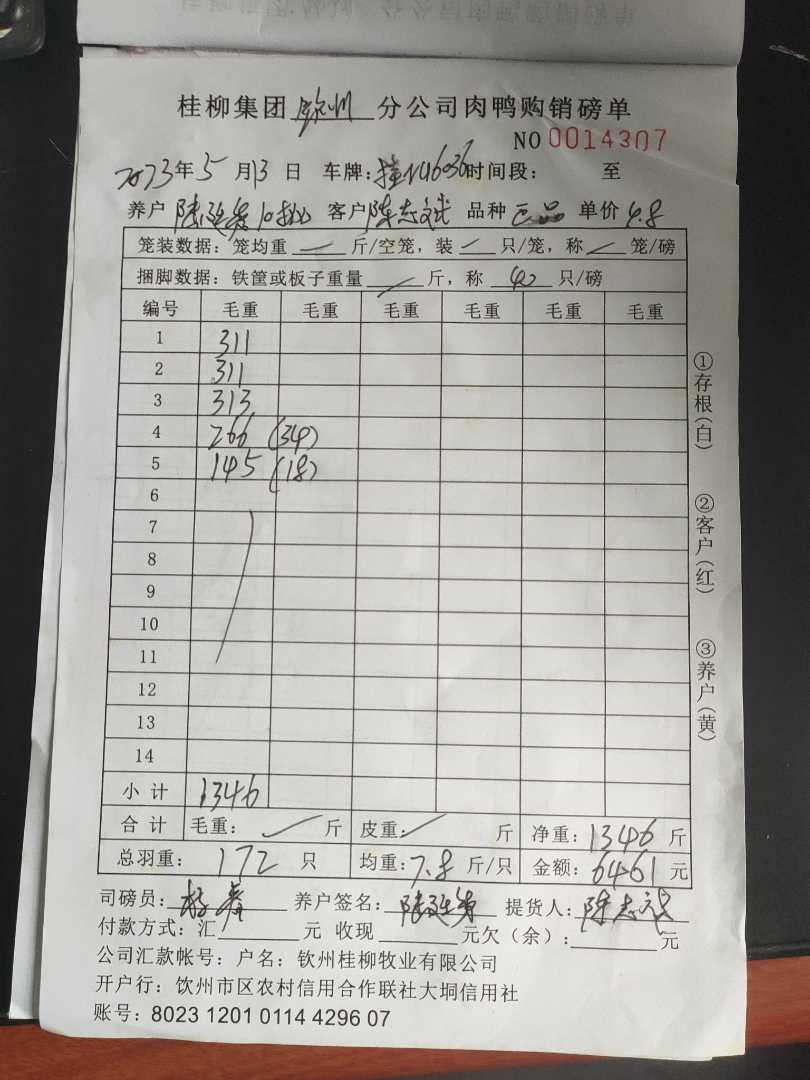 桂柳集团 钦州 分公司肉鸭购销磅单
NO 0014307
2023年5月13日 车牌: 时间段: 至
养户 10批 客户 陈志 品种 正品 单价 4.8
笼装数据：笼均重 斤/空笼，装 只/笼，称 笼/磅
捆脚数据：铁筐或板子重量 斤，称 40 只/磅
编号 毛重 毛重 毛重 毛重 毛重 毛重
1 311
2 311
3 313
4 266 (34)
5 145 (18)
6
7
8
9
10
11
12
13
14
小计 1346
合计 毛重: 斤 皮重: 斤 净重: 1346 斤
总羽重: 172 只 均重: 7.8 斤/只 金额: 6461 元
司磅员: 养户签名: 提货人: 陈志
付款方式：汇 元 收现 元欠（余）: 元
公司汇款帐号：户名：钦州桂柳牧业有限公司
开户行：饮州市区农村信用合作联社大垌信用社
账号：8023 1201 0114 4296 07
①存根(白)
②客户(红)
③养户(黄)